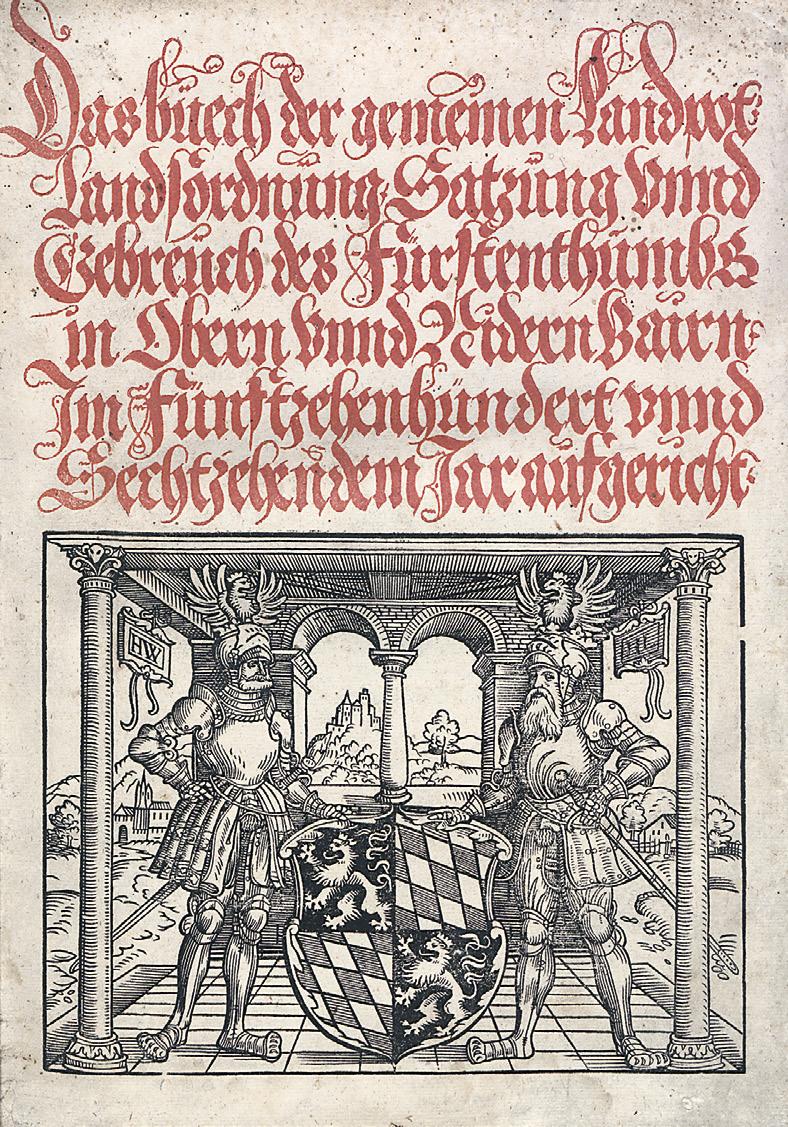 Das buech der gemeinen Landpot·
Landsordnung· Satzung Vnnd
Gebreuch des Fürstenthumbs
in Obern Vnnd Nidern Bairn·
Im Fünftzehenhundert vnnd
Sechtzehendem Jar aufgericht·